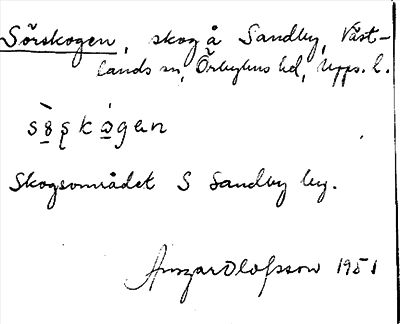 Sörskogen, skog å Sandby, Väst-
lands sn, Örbyhus hd, Upps. l.
sö̀ʂkógan
Skogsområdet S Sandby by.
Ansgar Olofsson 1951